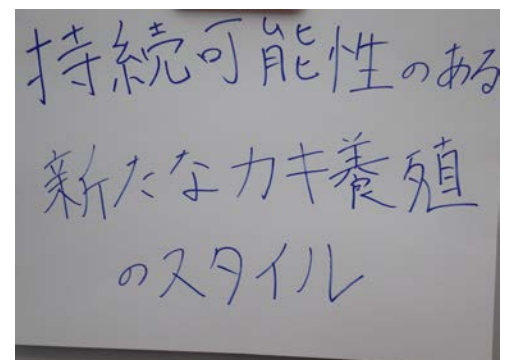 持続可能性のある
新たなカキ養殖
のスタイル